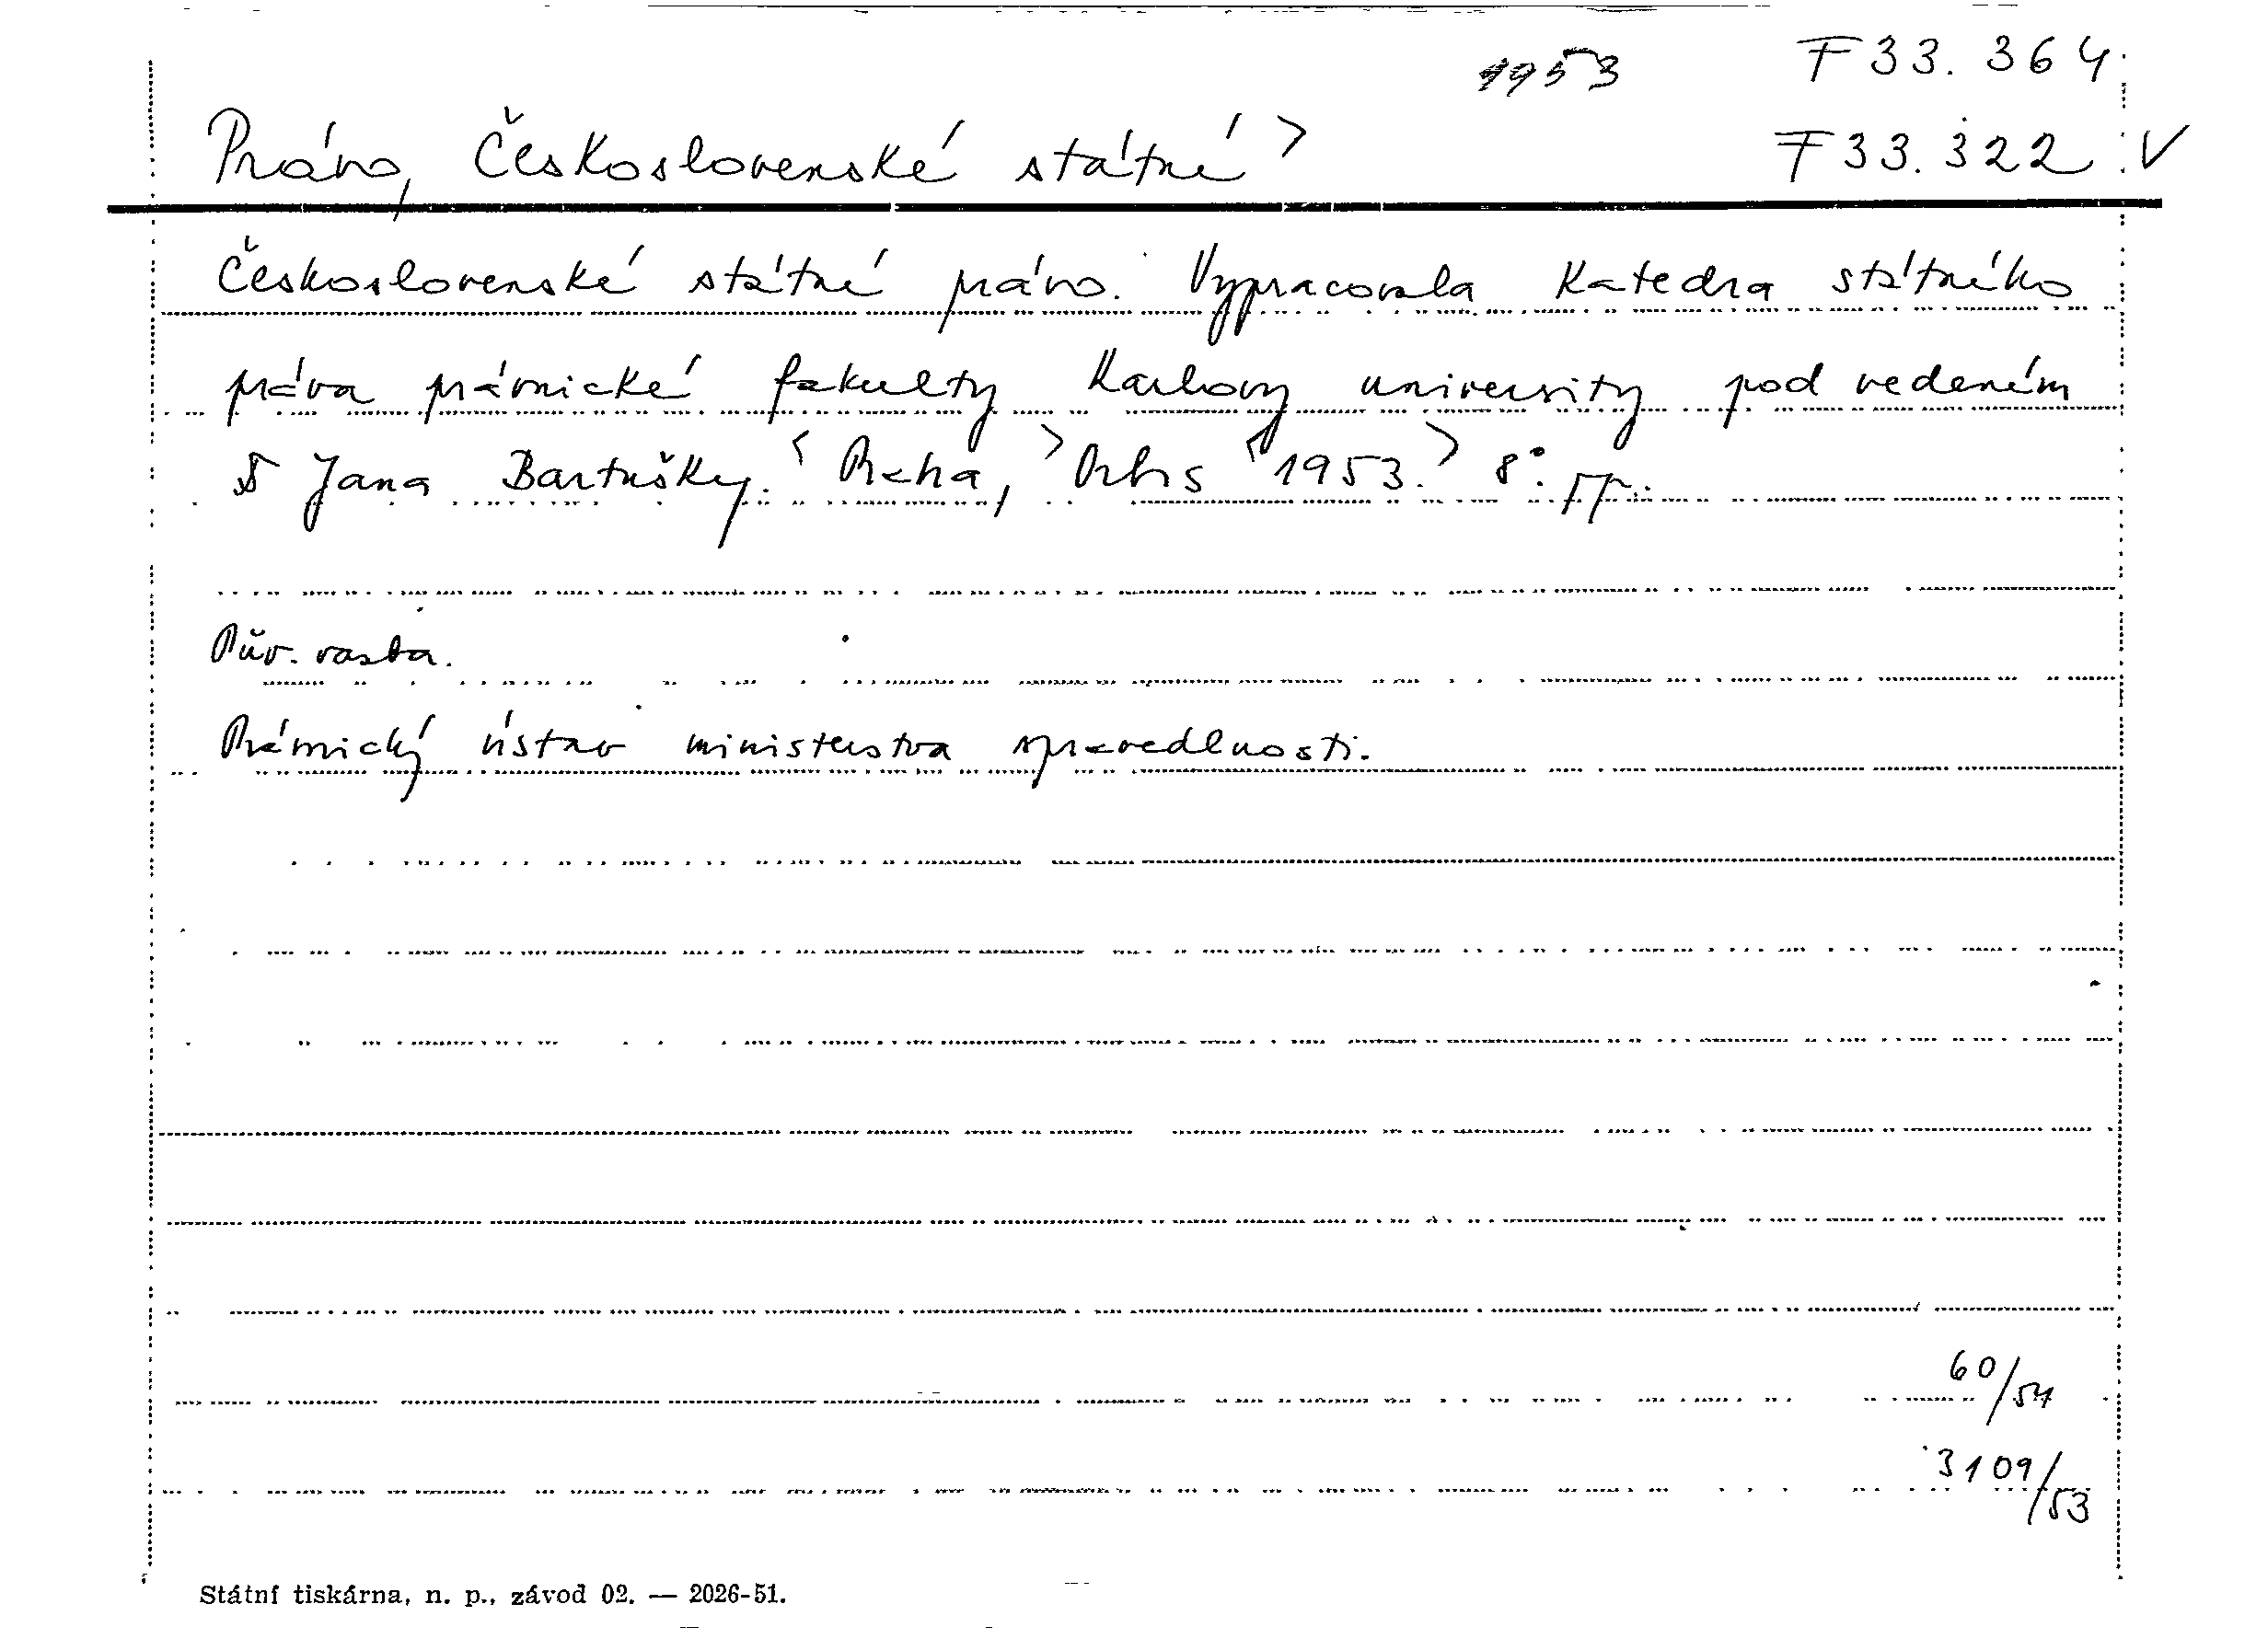 1953 F 33. 364
Právo, Československé státné > F 33. 322 V
Československé státné právo. Vypracovala Katedra státného
práva právnické fakulty Karlovy university pod vedeném
Jana Bartušky. < Praha, > Orbis < 1953. > 8°.
Pův. vazba.
Právnický ústav ministerstva spravedlnosti.
60/54
3109/53
Státní tiskárna, n. p., závod 02. — 2026-51.